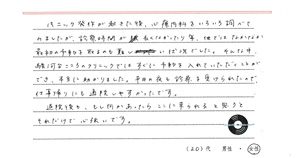 パニック発作が起きた後、心療内科をいろいろ調べて
みましたが、診察時間が長かったり、他ではなかなか
最初の予約を取るのも難しい状況でした。そんな中、
駿河こころのクリニックではすぐに予約を入れていただくことが
でき、本当に助かりました。平日の夜も診察を受けられたので
仕事帰りにも通院しやすかったです。
通院後も、もし何かあったらここに来られると思うと
それだけで心強いです。
(20)代 男性・女性